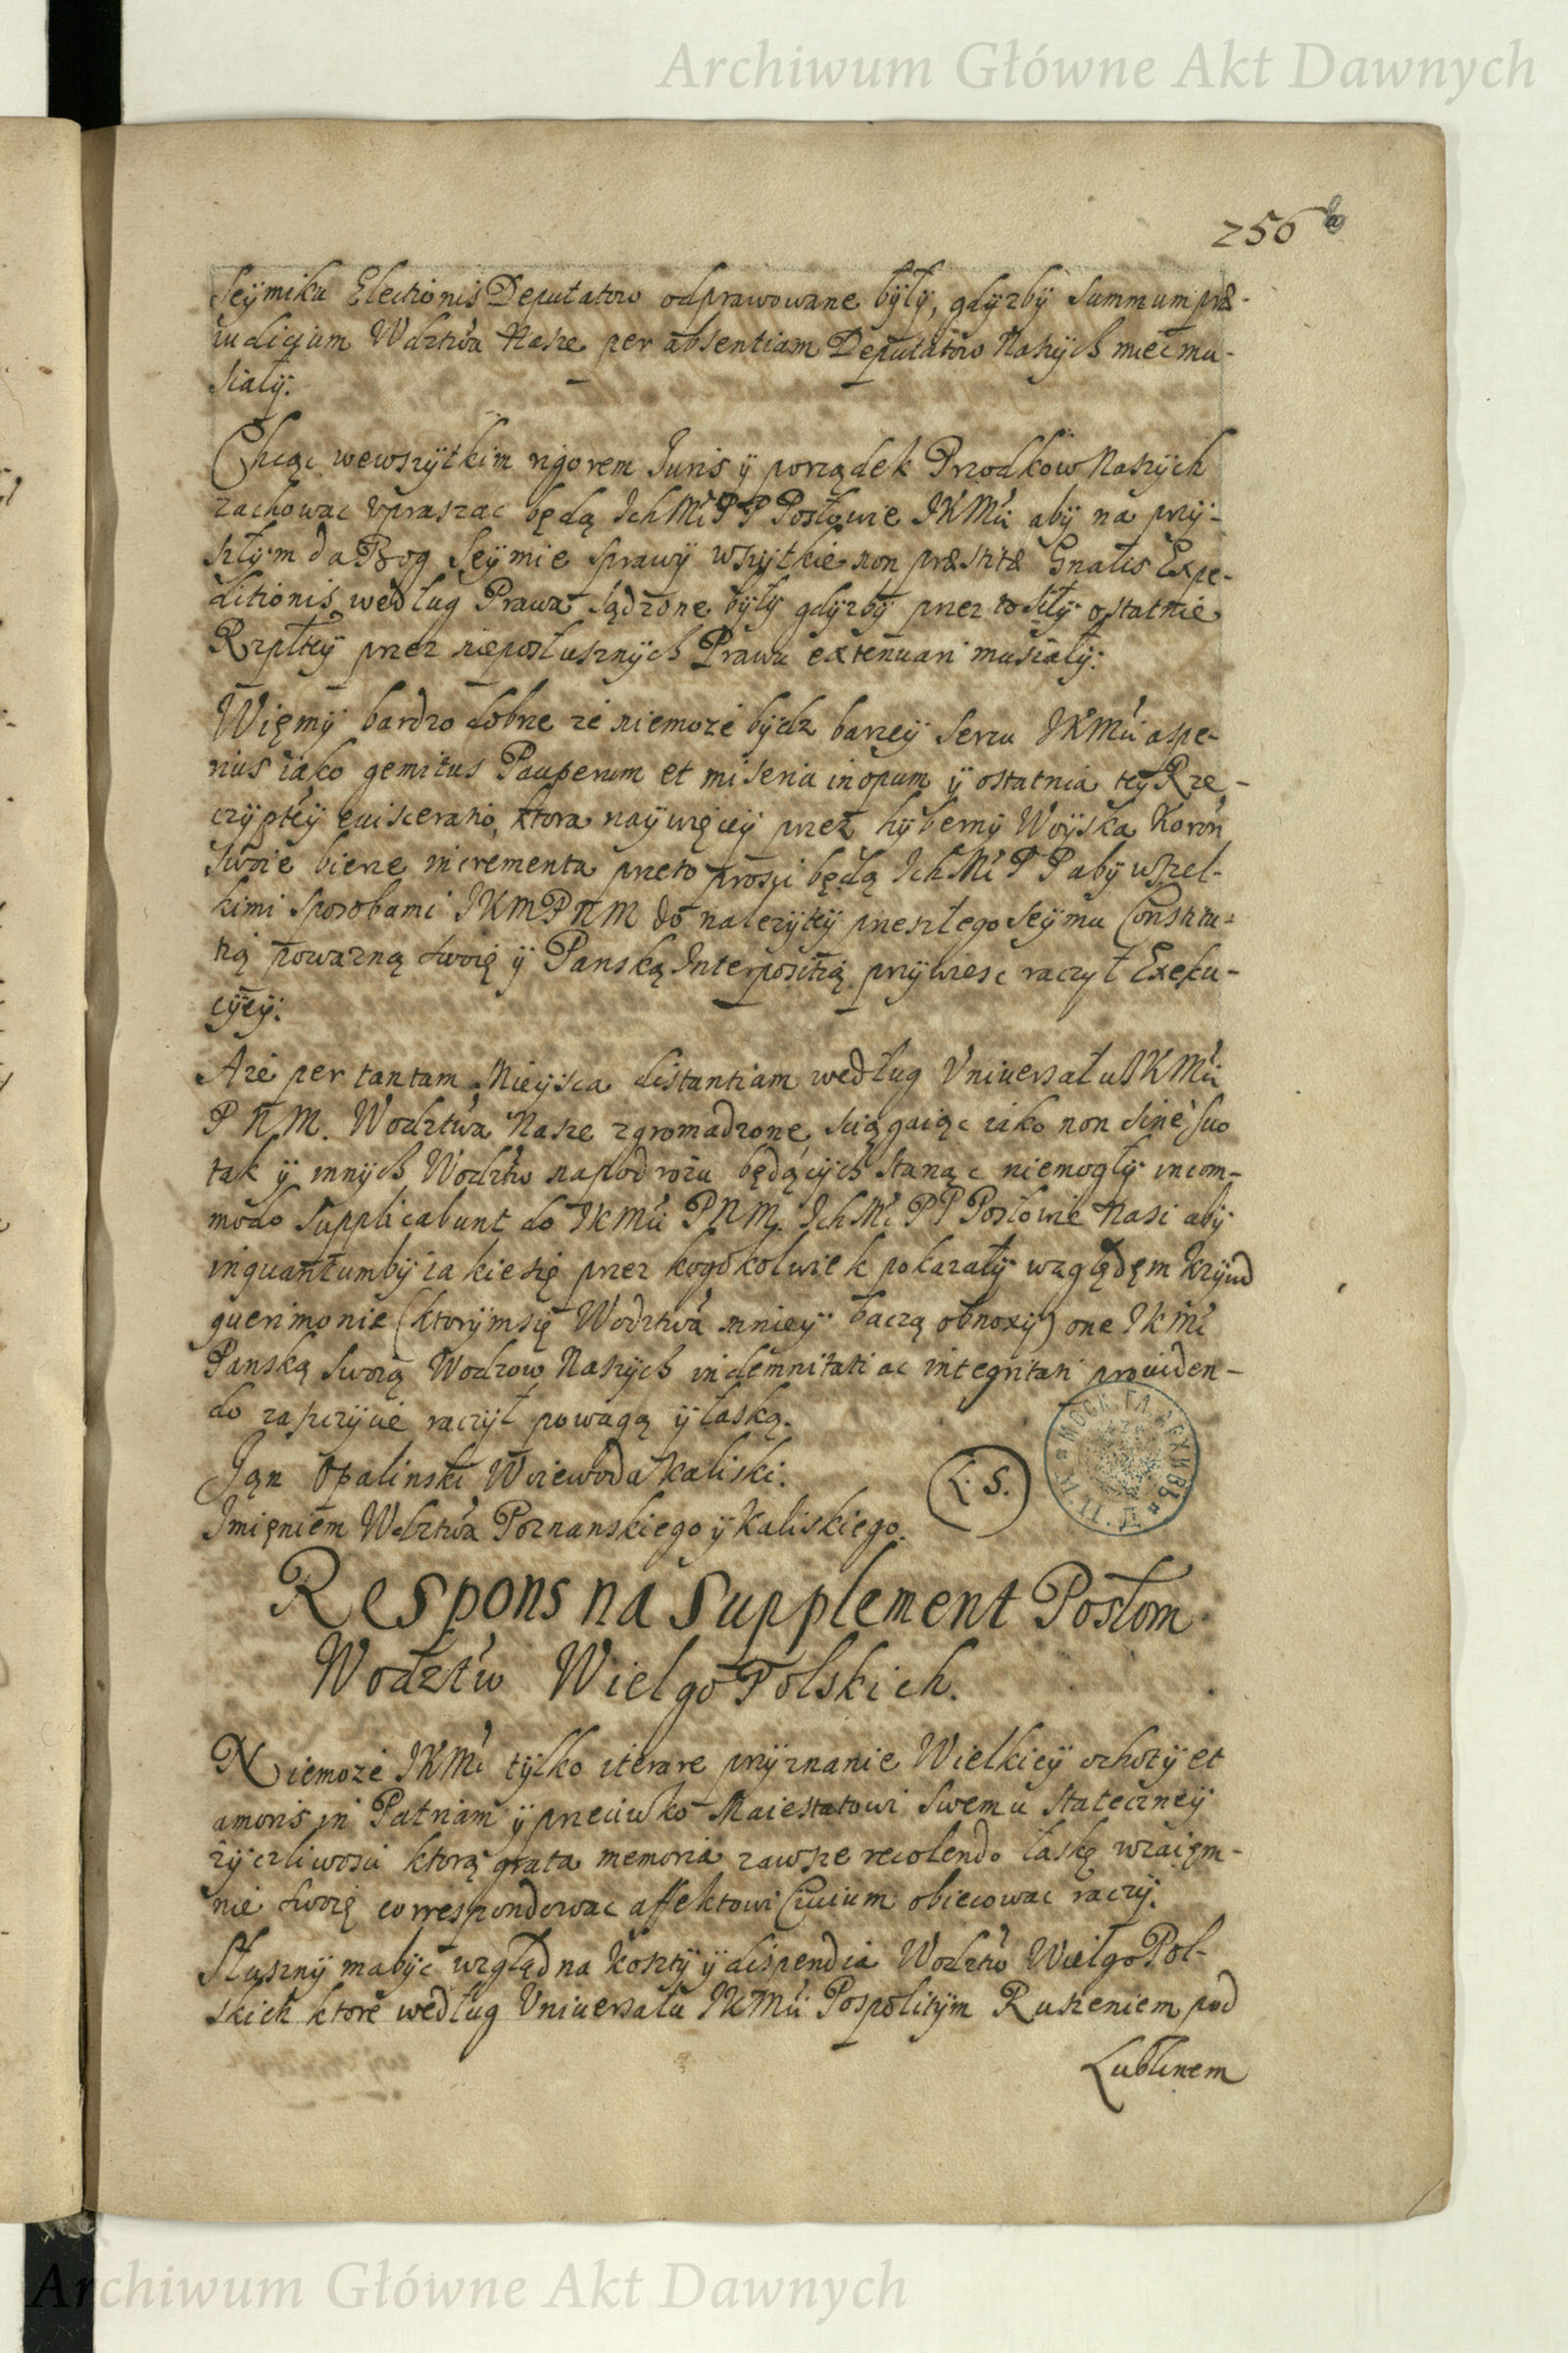 Archiwum Główne Akt Dawnych
256
Seÿmiku Electionis Deputatow odprawowane bÿłÿ, gdÿzbÿ Summum præ-
iudicium Wdztwa Nasze per absentiam Deputatow Naszÿch miec mu-
siałÿ.
Chcąc wewszÿtkim rigorem Juris ÿ porządek Przodkow Naszÿch
zachowac vpraszac będą Ich Mć PP Posłowie JKMći abÿ na przÿ-
szłÿm da Bog Seÿmie sprawÿ wszÿtkie non præstitæ Gnalis Expe-
ditionis według Prawa sądzone bÿłÿ gdÿzbÿ przez to siłÿ ostatnie
Rzplteÿ przez nieposłusznÿch Prawu extenuari musiałÿ.
Więmÿ bardzo dobrze ze niemoze bÿdz barzeÿ Sercu JKMći aspe-
rius iako gemitus Pauperum et miseria inopum ÿ ostatnia teÿ Rze-
czÿpteÿ euisceratio, ktora naÿwięceÿ przez hÿbernÿ Woÿska Koron
swoie bierze incrementa przeto prosic będą Ich Mć P P abÿ wszel-
kimi sposobami JKMPNM do nalezÿteÿ przeszłego Seÿmu Constitu-
tią powazną swoię ÿ Panską Interpositią przÿwiesc raczÿł Exeku-
cÿeÿ.
Aze per tantam Mieÿsca distantiam według Vniuersału JKMći
P N M. Wodztwa Nasze zgromadzone, sciągaiąc iako non sine suo
tak ÿ innÿch Wodztw napodrozu będącÿch stanąc niemogłÿ incom-
modo supplicabunt do JKMći PNM. Ich Mć PP Posłowie Nasi abÿ
inquantumbÿ iakiesię przez kogokolwiek pokazałÿ względęm krzÿwd
querimonie (ktorÿmsię Wodztwa mnieÿ baczą obnoxÿ) one JKMć
Panską swoią Wodzow Naszÿch indemnitati ac integritati prouiden-
do zaszczÿcic raczÿł powagą ÿ łaską.
Jąn Opalinski Woiewoda Kaliski.
L. S.
Imięniem Wdztwa Poznanskiego ÿ Kaliskiego.
Respons na Supplement Posłom
Wodztw WielgoPolskich.
Niemoze JKMć tÿlko iterare przÿznanie Wielkieÿ ochotÿ et
amoris in Patriam ÿ przeciwko Maiestatowi Swemu stateczneÿ
zÿczliwosci ktorą grata memoria zawsze recolendo łaskę wzaięm-
nie swoię correspondowac affektowi Ciuium obiecowac raczÿ.
Słusznÿ mabÿc wzgląd na kosztÿ ÿ dispendia Wodztw WielgoPol-
skich ktore według Vniuersału JKMći Pospolitÿm Ruszeniem pod
Lublinem
Archiwum Główne Akt Dawnych